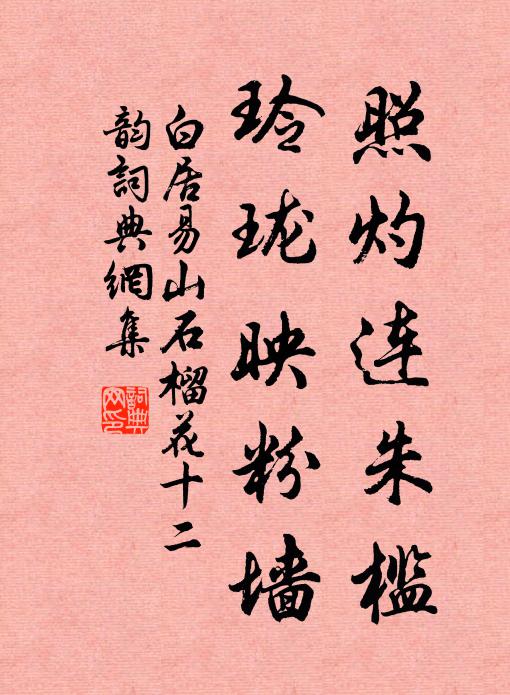 照灼连朱槛
玲珑映粉墙
白居易山石榴花十二
韵詞典網集
詞典
网印